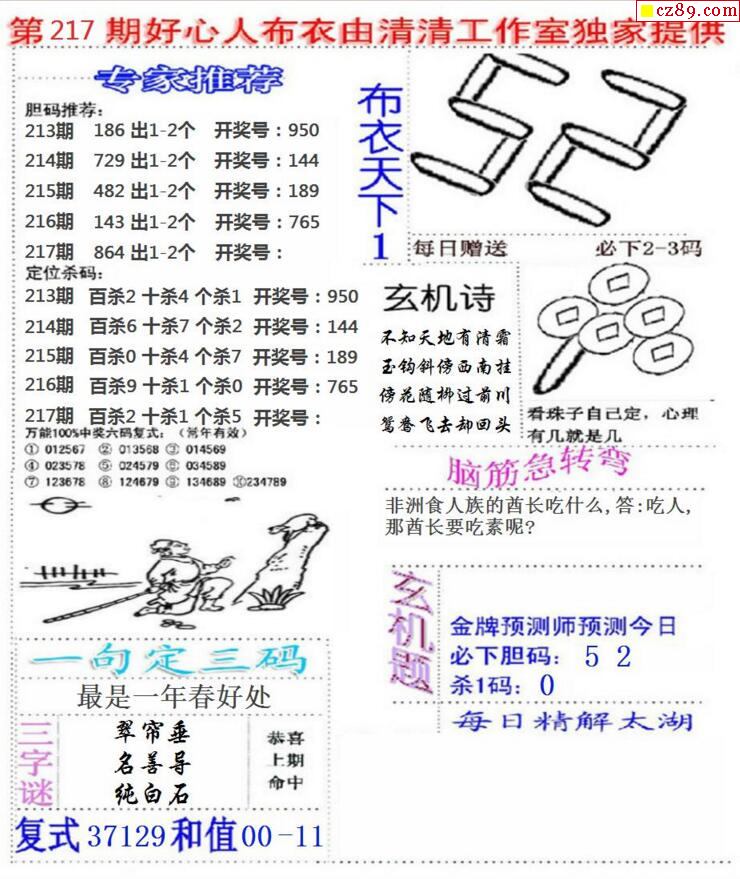 cz89.com
第217期好心人布衣由清清工作室独家提供
专家推荐
胆码推荐:
213期 186 出1-2个 开奖号：950
214期 729 出1-2个 开奖号：144
215期 482 出1-2个 开奖号：189
216期 143 出1-2个 开奖号：765
217期 864 出1-2个 开奖号：
定位杀码:
213期 百杀2 十杀4 个杀1 开奖号：950
214期 百杀6 十杀7 个杀2 开奖号：144
215期 百杀0 十杀4 个杀7 开奖号：189
216期 百杀9 十杀1 个杀0 开奖号：765
217期 百杀2 十杀1 个杀5 开奖号：
万能100%中奖六码复式：（常年有效）
① 012567 ② 013568 ③ 014569
④ 023578 ⑤ 024579 ⑥ 034589
⑦ 123678 ⑧ 124679 ⑨ 134689 ⑩234789
布衣天下1
52
每日赠送 必下2-3码
玄机诗
不知天地有清霜
玉钩斜傍西南挂
傍花随柳过前川
鸳鸯飞去却回头
看珠子自己定，心理
有几就是几
脑筋急转弯
非洲食人族的酋长吃什么,答:吃人,
那酋长要吃素呢?
一句定三码
最是一年春好处
三字谜
翠帘垂
名善导
纯白石
恭喜
上期
命中
复式37129和值00-11
玄机题
金牌预测师预测今日
必下胆码： 5 2
杀1码：0
每日精解太湖